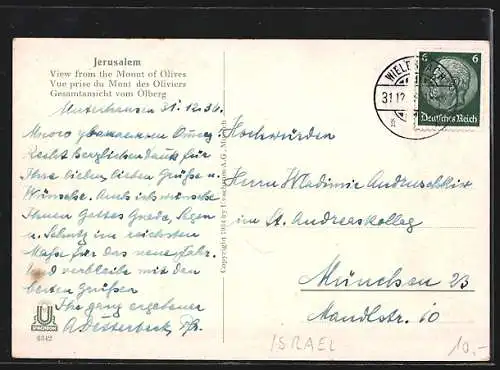 Jerusalem
View from the Mount of Olives
Vue prise du Mont des Oliviers
Gesamtansicht vom Ölberg
Unterhausen 31.12.34
Recht herzlichen Dank für
Ihre lieben, lieben Grüße u.
Wünsche. Auch ich wünsche
Ihnen Gottes Gnade, Segen
u. Schutz im reichsten
Maße für das neue Jahr.
Und verbleibe mit den
besten Grüßen
Ihr ganz ergebener
UVACHROM
Copyright 1934 by Uvachrom A.G.
6
6
Deutsches Reich
31.12.
Hochwürden
Herrn Wladimir
im St. Andreaskolleg
München 23
Mandlstr. 10
ISRAEL
10.-